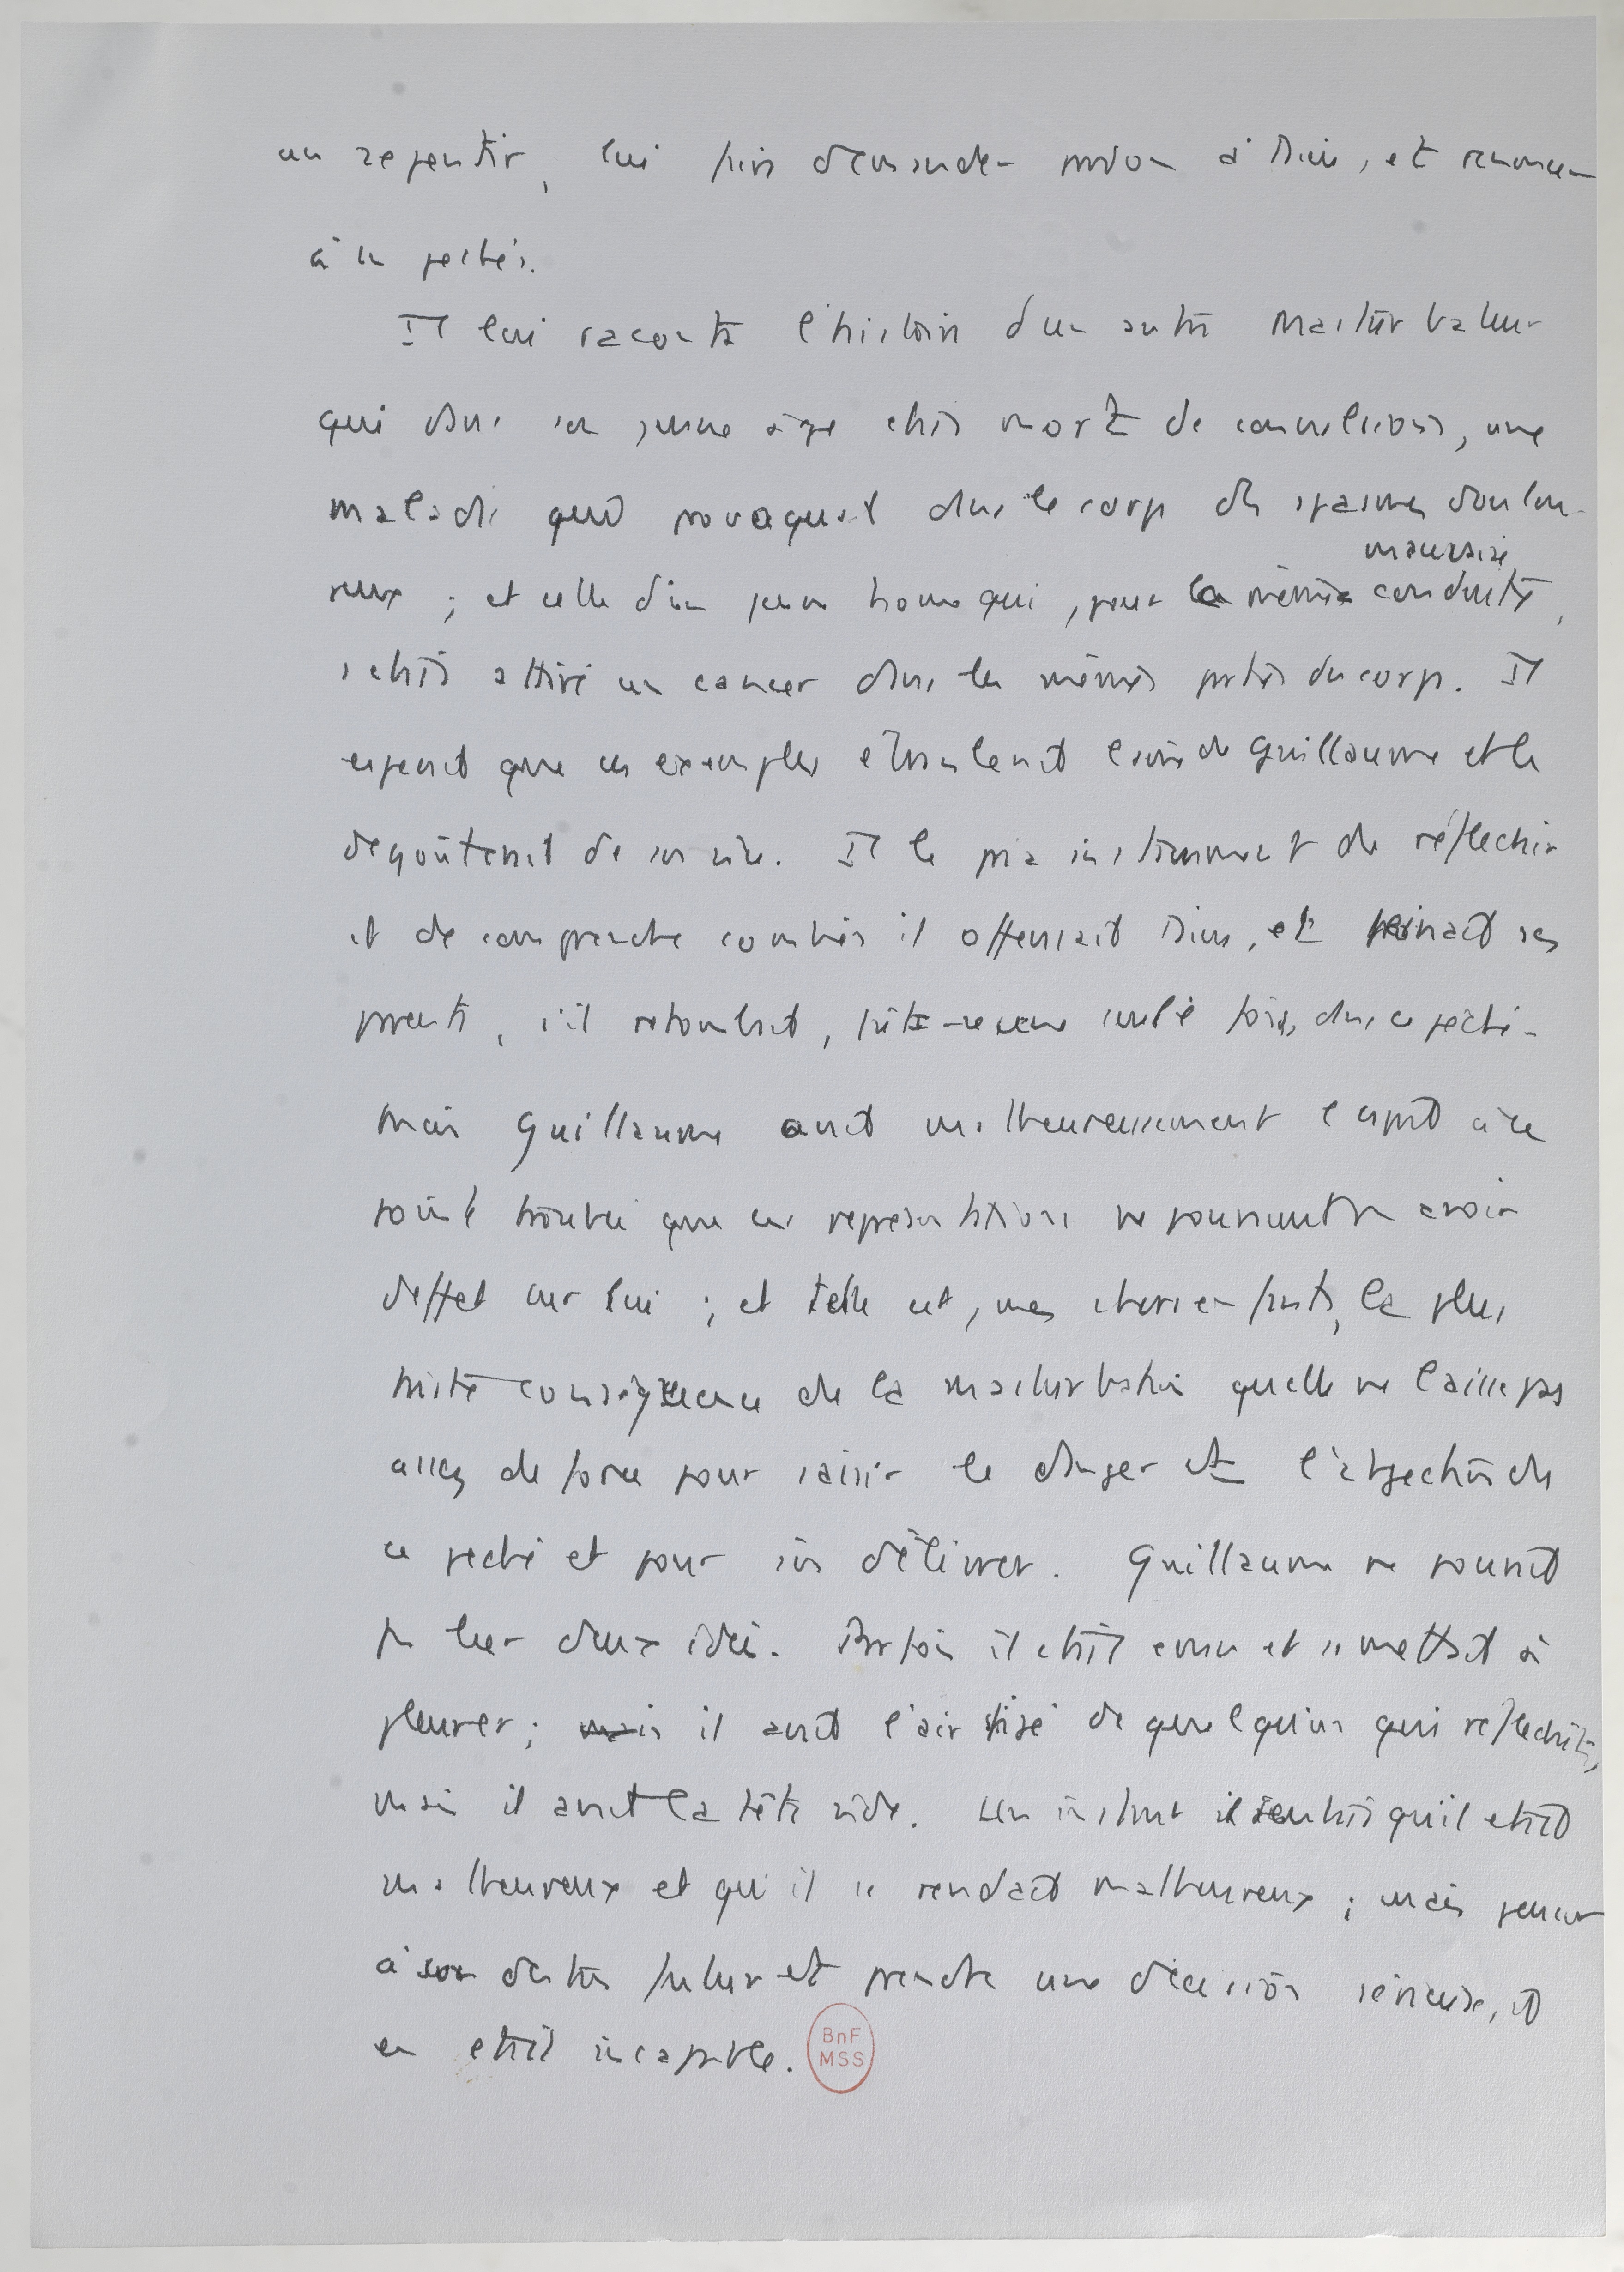 au repentir, lui faire demander pardon à Dieu, et renoncer
à ses péchés.
Il lui raconta l'histoire d'un autre masturbateur
qui dans son jeune âge était mort de convulsions, une
maladie qui provoquait dans le corps des spasmes doulou-
reux ; et celle d'un jeune homme qui, pour la même mauvaise conduite,
s'était attiré un cancer dans les mêmes parties du corps. Il
espérait que ces exemples ébranleraient l'âme de Guillaume et le
dégoûteraient de son vice. Il le pria instamment de réfléchir
et de comprendre combien il offensait Dieu, et peinait ses
parents, s'il retombait, fût-ce une seule fois, dans ce péché.
Mais Guillaume avait malheureusement l'esprit à ce
point troublé que ces représentations ne pouvaient avoir
d'effet sur lui ; et telle est, mes chers enfants, la plus
triste conséquence de la masturbation qu'elle ne laisse pas
assez de force pour saisir le danger et l'abjection de
ce péché et pour s'en délivrer. Guillaume ne pouvait
pas lier deux idées. Parfois il était ému et se mettait à
pleurer ; mais il avait l'air figé de quelqu'un qui réfléchit,
mais il avait la tête vide. Un instant il sentait qu'il était
malheureux et qu'il se rendait malheureux ; mais penser
à son destin futur et prendre une décision sérieuse, il
en était incapable.
BnF
MSS